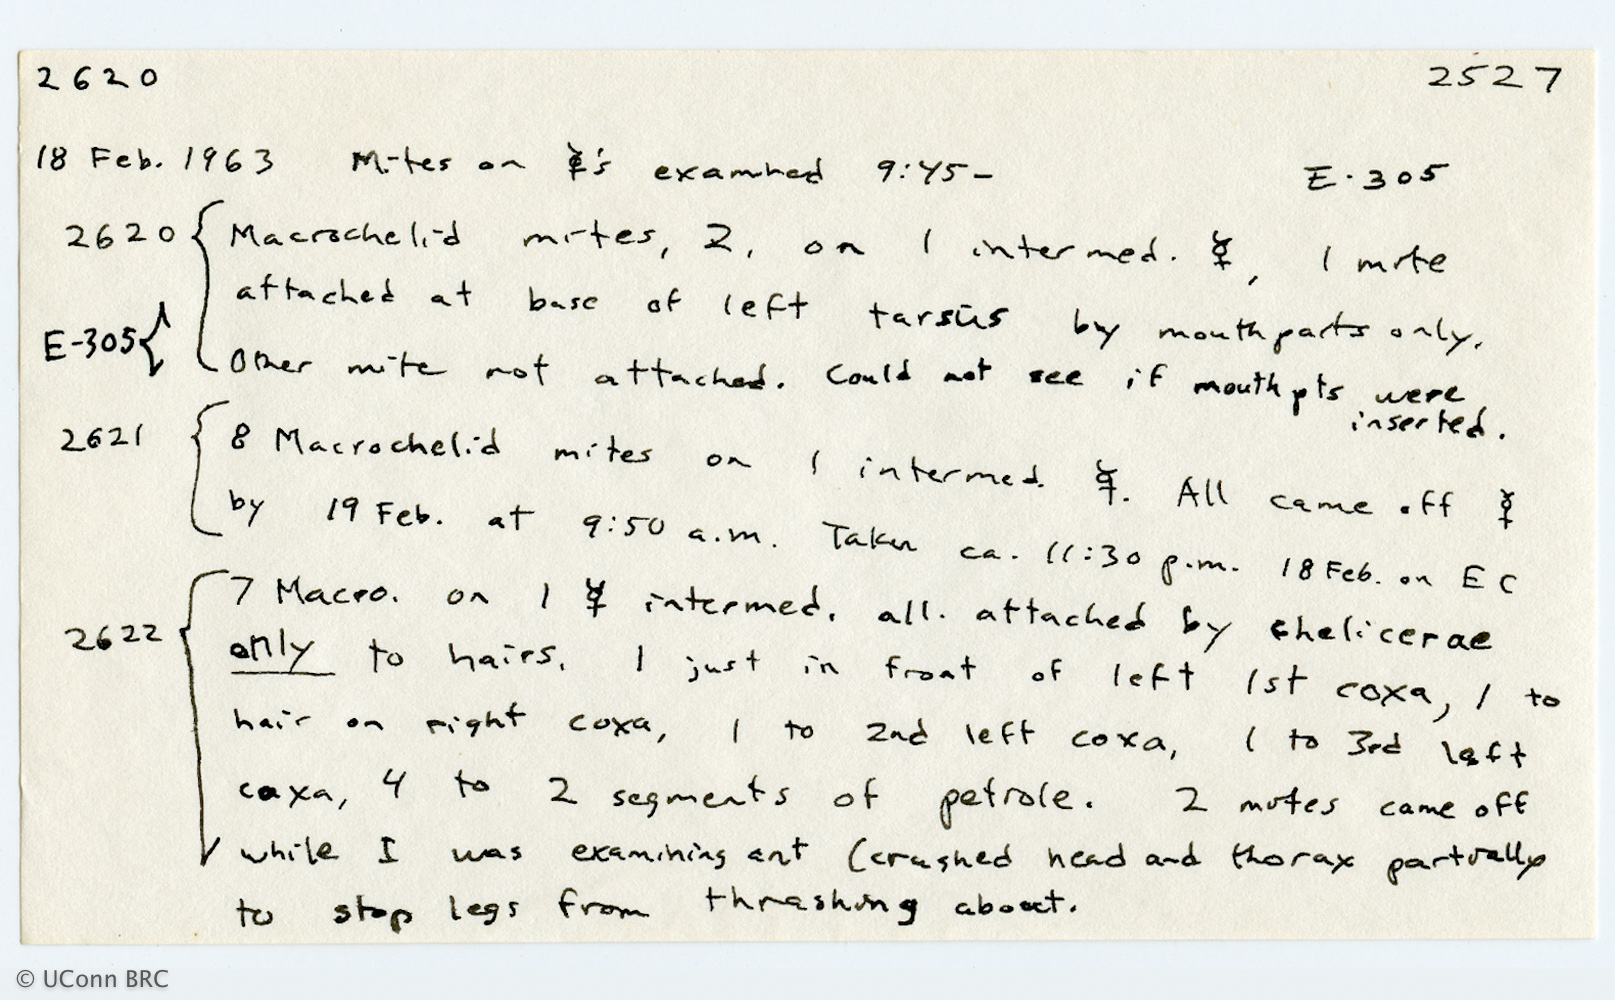 2620 2527
18 Feb. 1963 Mites on ☿'s examined 9:45– E-305
2620 { Macrochelid mites, 2, on 1 intermed. ☿, 1 mite
attached at base of left tarsus by mouthparts only.
E-305 { Other mite not attached. Could not see if mouthpts were
inserted.
2621 { 8 Macrochelid mites on 1 intermed. ☿. All came off ☿
by 19 Feb. at 9:50 a.m. Taken ca. 11:30 p.m. 18 Feb. on EC
2622 { 7 Macro. on 1 ☿ intermed. all. attached by chelicerae
only to hairs. 1 just in front of left 1st coxa, 1 to
hair on right coxa, 1 to 2nd left coxa, 1 to 3rd left
coxa, 4 to 2 segments of petiole. 2 mites came off
while I was examining ant (crushed head and thorax partially
to stop legs from thrashing about.
© UConn BRC